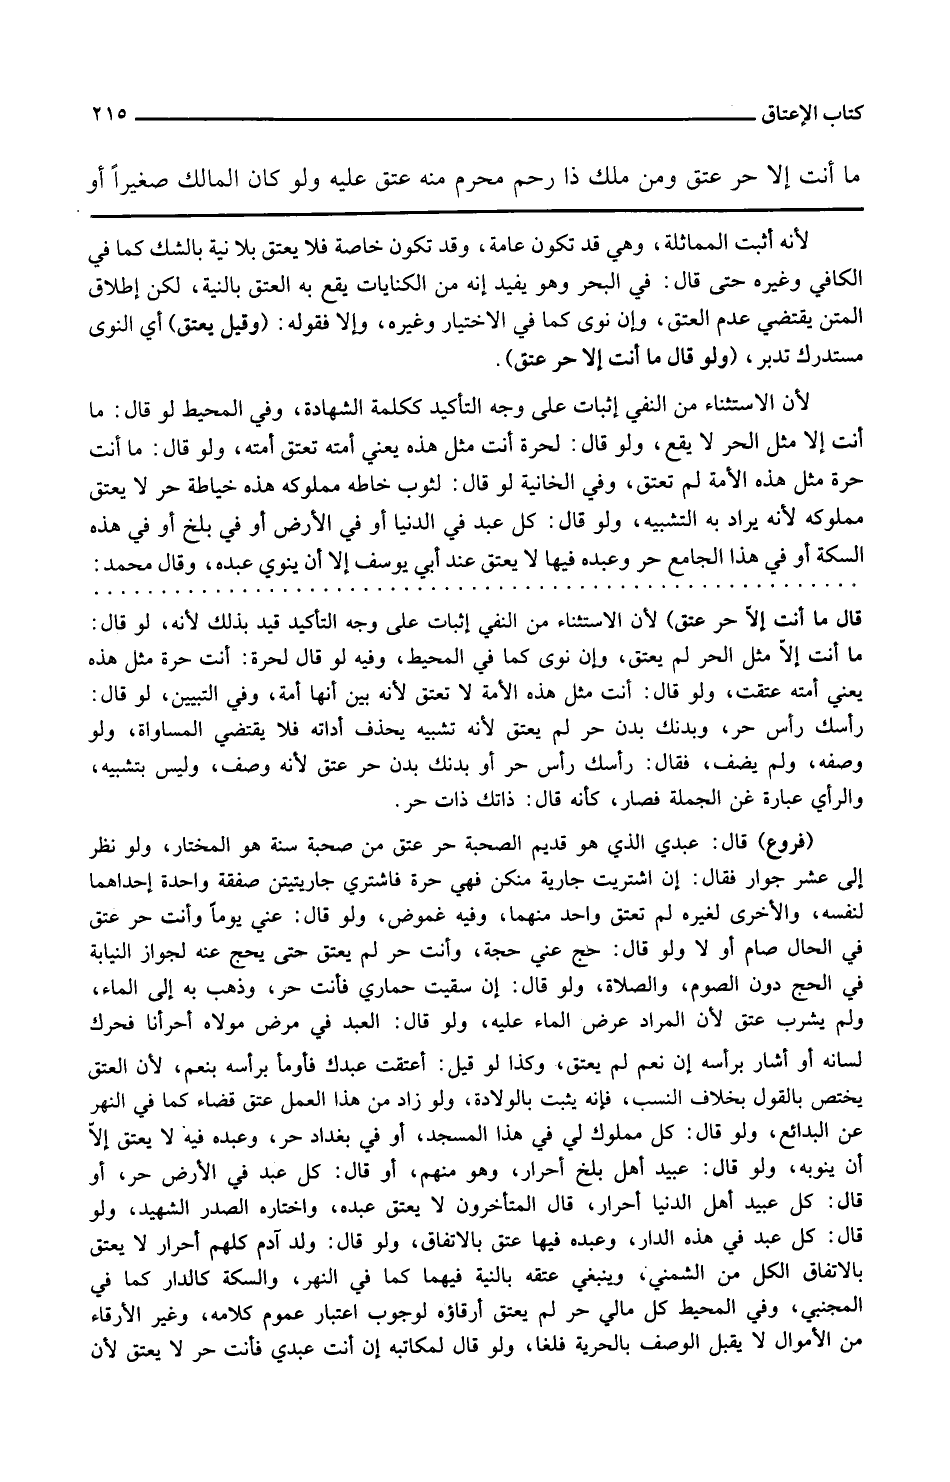 كتاب الإعتاق ٢١٥
ما أنت إلا حر عتق ومن ملك ذا رحم محرم منه عتق عليه ولو كان المالك صغيراً أو
لأنه أثبت المماثلة، وهي قد تكون عامة، وقد تكون خاصة فلا يعتق بلا نية بالشك كما في
الكافي وغيره حتى قال: في البحر وهو يفيد إنه من الكنايات يقع به العتق بالنية، لكن إطلاق
المتن يقتضي عدم العتق، وإن نوى كما في الاختيار وغيره، وإلا فقوله: (وقيل يعتق) أي النوى
مستدرك تدبر، (ولو قال ما أنت إلا حر عتق).
لأن الاستثناء من النفي إثبات على وجه التأكيد ككلمة الشهادة، وفي المحيط لو قال: ما
أنت إلا مثل الحر لا يقع، ولو قال: لحرة أنت مثل هذه يعني أمته تعتق أمته، ولو قال: ما أنت
حرة مثل هذه الأمة لم تعتق، وفي الخانية لو قال: لثوب خاطه مملوكه هذه خياطة حر لا يعتق
مملوكه لأنه يراد به التشبيه، ولو قال: كل عبد في الدنيا أو في الأرض أو في بلخ أو في هذه
السكة أو في هذا الجامع حر وعبده فيها لا يعتق عند أبي يوسف إلا أن ينوي عبده، وقال محمد:
قال ما أنت إلاّ حر عتق) لأن الاستثناء من النفي إثبات على وجه التأكيد قيد بذلك لأنه، لو قال:
ما أنت إلاّ مثل الحر لم يعتق، وإن نوى كما في المحيط، وفيه لو قال لحرة: أنت حرة مثل هذه
يعني أمته عتقت، ولو قال: أنت مثل هذه الأمة لا تعتق لأنه بين أنها أمة، وفي التبيين، لو قال:
رأسك رأس حر، وبدنك بدن حر لم يعتق لأنه تشبيه يحذف أداته فلا يقتضي المساواة، ولو
وصفه، ولم يضف، فقال: رأسك رأس حر أو بدنك بدن حر عتق لأنه وصف، وليس بتشبيه،
والرأي عبارة غن الجملة فصار، كأنه قال: ذاتك ذات حر.
(فروع) قال: عبدي الذي هو قديم الصحبة حر عتق من صحبة سنة هو المختار، ولو نظر
إلى عشر جوار فقال: إن اشتريت جارية منكن فهي حرة فاشتري جاريتيتن صفقة واحدة إحداهما
لنفسه، والأخرى لغيره لم تعتق واحد منهما، وفيه غموض، ولو قال: عني يوماً وأنت حر عتق
في الحال صام أو لا ولو قال: حج عني حجة، وأنت حر لم يعتق حتى يحج عنه لجواز النيابة
في الحج دون الصوم، والصلاة، ولو قال: إن سقيت حماري فأنت حر، وذهب به إلى الماء،
ولم يشرب عتق لأن المراد عرض الماء عليه، ولو قال: العبد في مرض مولاه أحرأنا فحرك
لسانه أو أشار برأسه إن نعم لم يعتق، وكذا لو قيل: أعتقت عبدك فأومأ برأسه بنعم، لأن العتق
يختص بالقول بخلاف النسب، فإنه يثبت بالولادة، ولو زاد من هذا العمل عتق قضاء كما في النهر
عن البدائع، ولو قال: كل مملوك لي في هذا المسجد، أو في بغداد حر، وعبده فيه لا يعتق إلاّ
أن ينويه، ولو قال: عبيد أهل بلخ أحرار، وهو منهم، أو قال: كل عبد في الأرض حر، أو
قال: كل عبيد أهل الدنيا أحرار، قال المتأخرون لا يعتق عبده، واختاره الصدر الشهيد، ولو
قال: كل عبد في هذه الدار، وعبده فيها عتق بالاتفاق، ولو قال: ولد آدم كلهم أحرار لا يعتق
بالاتفاق الكل من الشمني، وينبغي عتقه بالنية فيهما كما في النهر، والسكة كالدار كما في
المجنبي، وفي المحيط كل مالي حر لم يعتق أرقاؤه لوجوب اعتبار عموم كلامه، وغير الأرقاء
من الأموال لا يقبل الوصف بالحرية فلغا، ولو قال لمكاتبه إن أنت عبدي فأنت حر لا يعتق لأن